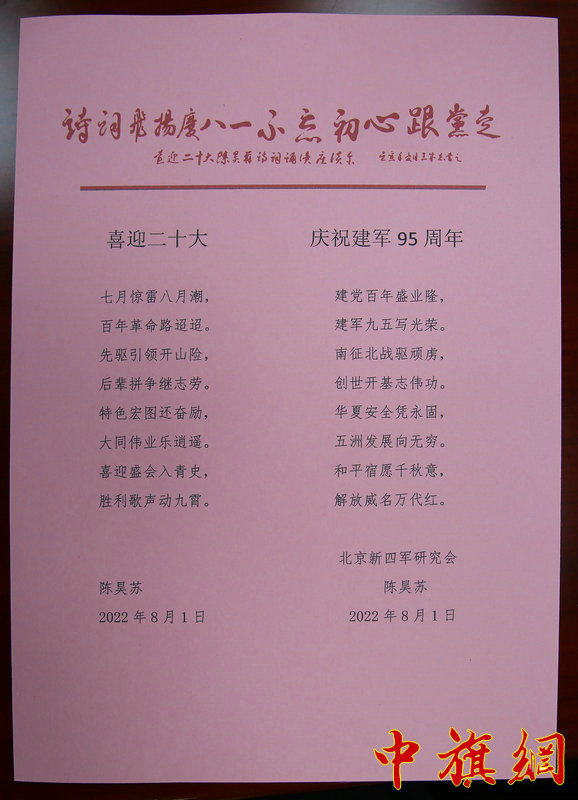 诗词飞扬庆八一不忘初心跟党走
喜迎二十大陈昊苏诗词诵读座谈会
喜迎二十大
七月惊雷八月潮，
百年革命路迢迢。
先驱引领开山险，
后辈拼争继志劳。
特色宏图还奋励，
大同伟业乐逍遥。
喜迎盛会入青史，
胜利歌声动九霄。
陈昊苏
2022 年 8 月 1 日
庆祝建军 95 周年
建党百年盛业隆，
建军九五写光荣。
南征北战驱顽虏，
创世开基志伟功。
华夏安全凭永固，
五洲发展向无穷。
和平宿愿千秋意，
解放威名万代红。
北京新四军研究会
陈昊苏
2022 年 8 月 1 日
中旗網